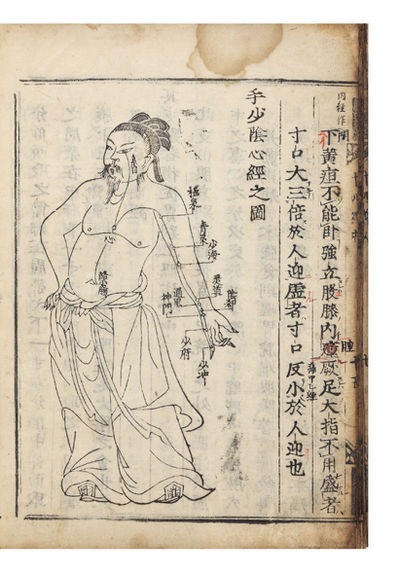 內經作閉
下黃疸不能卧強立股膝內腫厥足大指不用盛者
寸口大三倍於人迎虛者寸口反小於人迎也
手少陰心經之圖
極泉
青灵
少海
灵道
通里
神門
少府
少冲
心